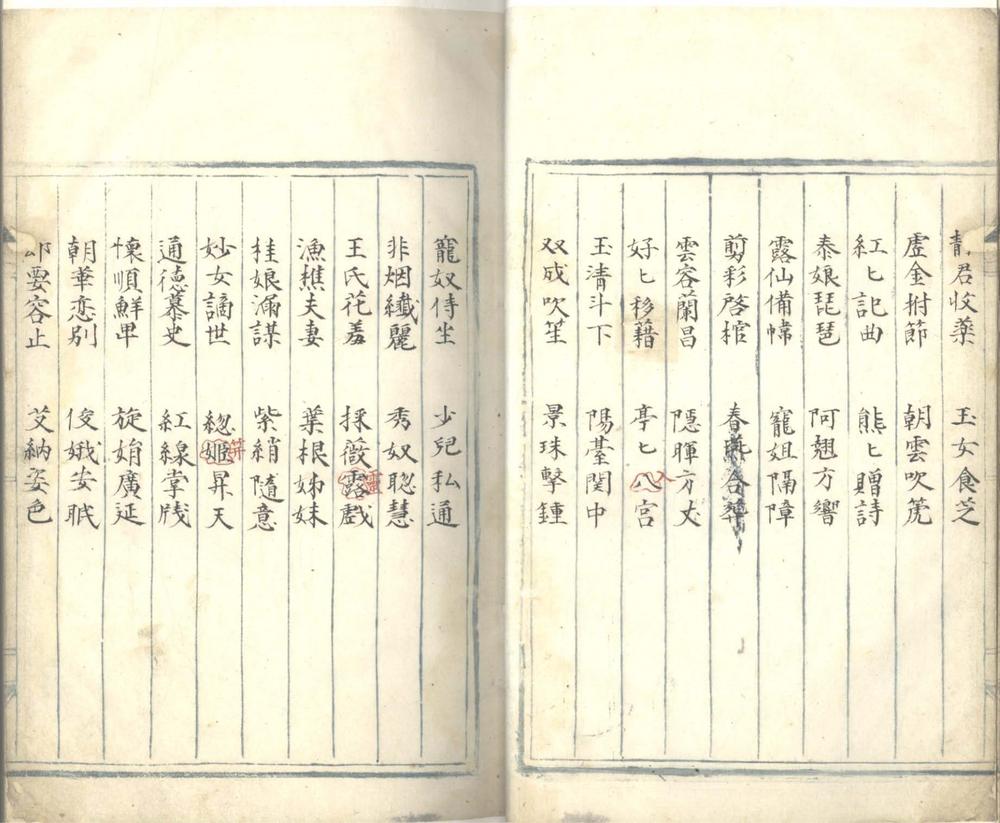 靜君收藥 玉女食芝
虛金拊節 朝雲吹箎
紅匕記曲 熊匕贈詩
泰娘琵琶 阿翹方響
露仙備幃 寵姐隔障
剪彩啓棺 春燕合葬
雲容蘭昌 隠暉方丈
好匕移籍 亭匕入宮
玉淸斗下 陽臺関中
双成吹笙 景珠擊鍾
寵奴侍坐 少兒私通
非烟纎麗 秀奴聡慧
王氏花羞 採薇露戲
漁樵夫妻 葉根姊妹
桂娘漏謀 紫綃隨意
妙女謫世 緫姬昇天 笄
通徳慕史 紅線掌牋
懷順鮮卑 旋娟廣延
朝華恋別 俊娥安眠
要容止 艾納姿色